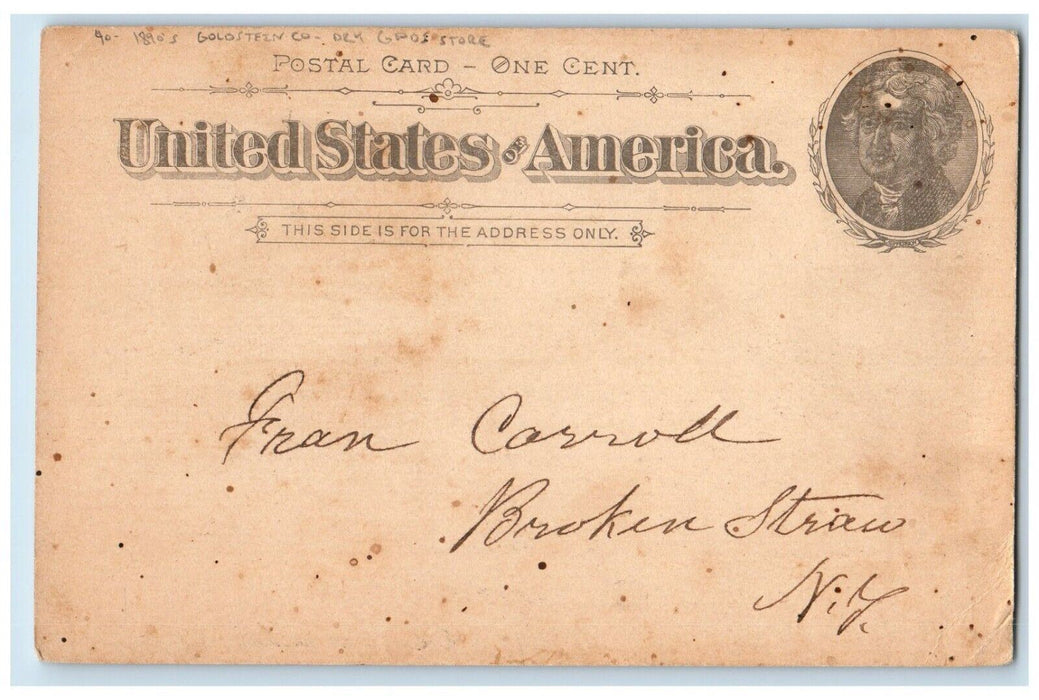 40- 1890's GOLDSTEIN CO- DRY GDS STORE
POSTAL CARD – ONE CENT.
United States OF America.
THIS SIDE IS FOR THE ADDRESS ONLY.
Fran Carroll
Broken Straw
N.Y.